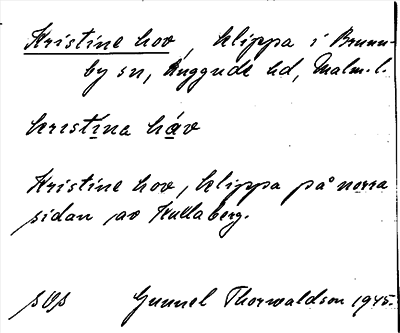 Kristine hov, klippa i Brunn-
by sn, Luggude hd, Malm. l.
kristina háv
Kristine hov, klippa på norra
sidan av Kullaberg.
Gunnel Thorwaldson 1945.